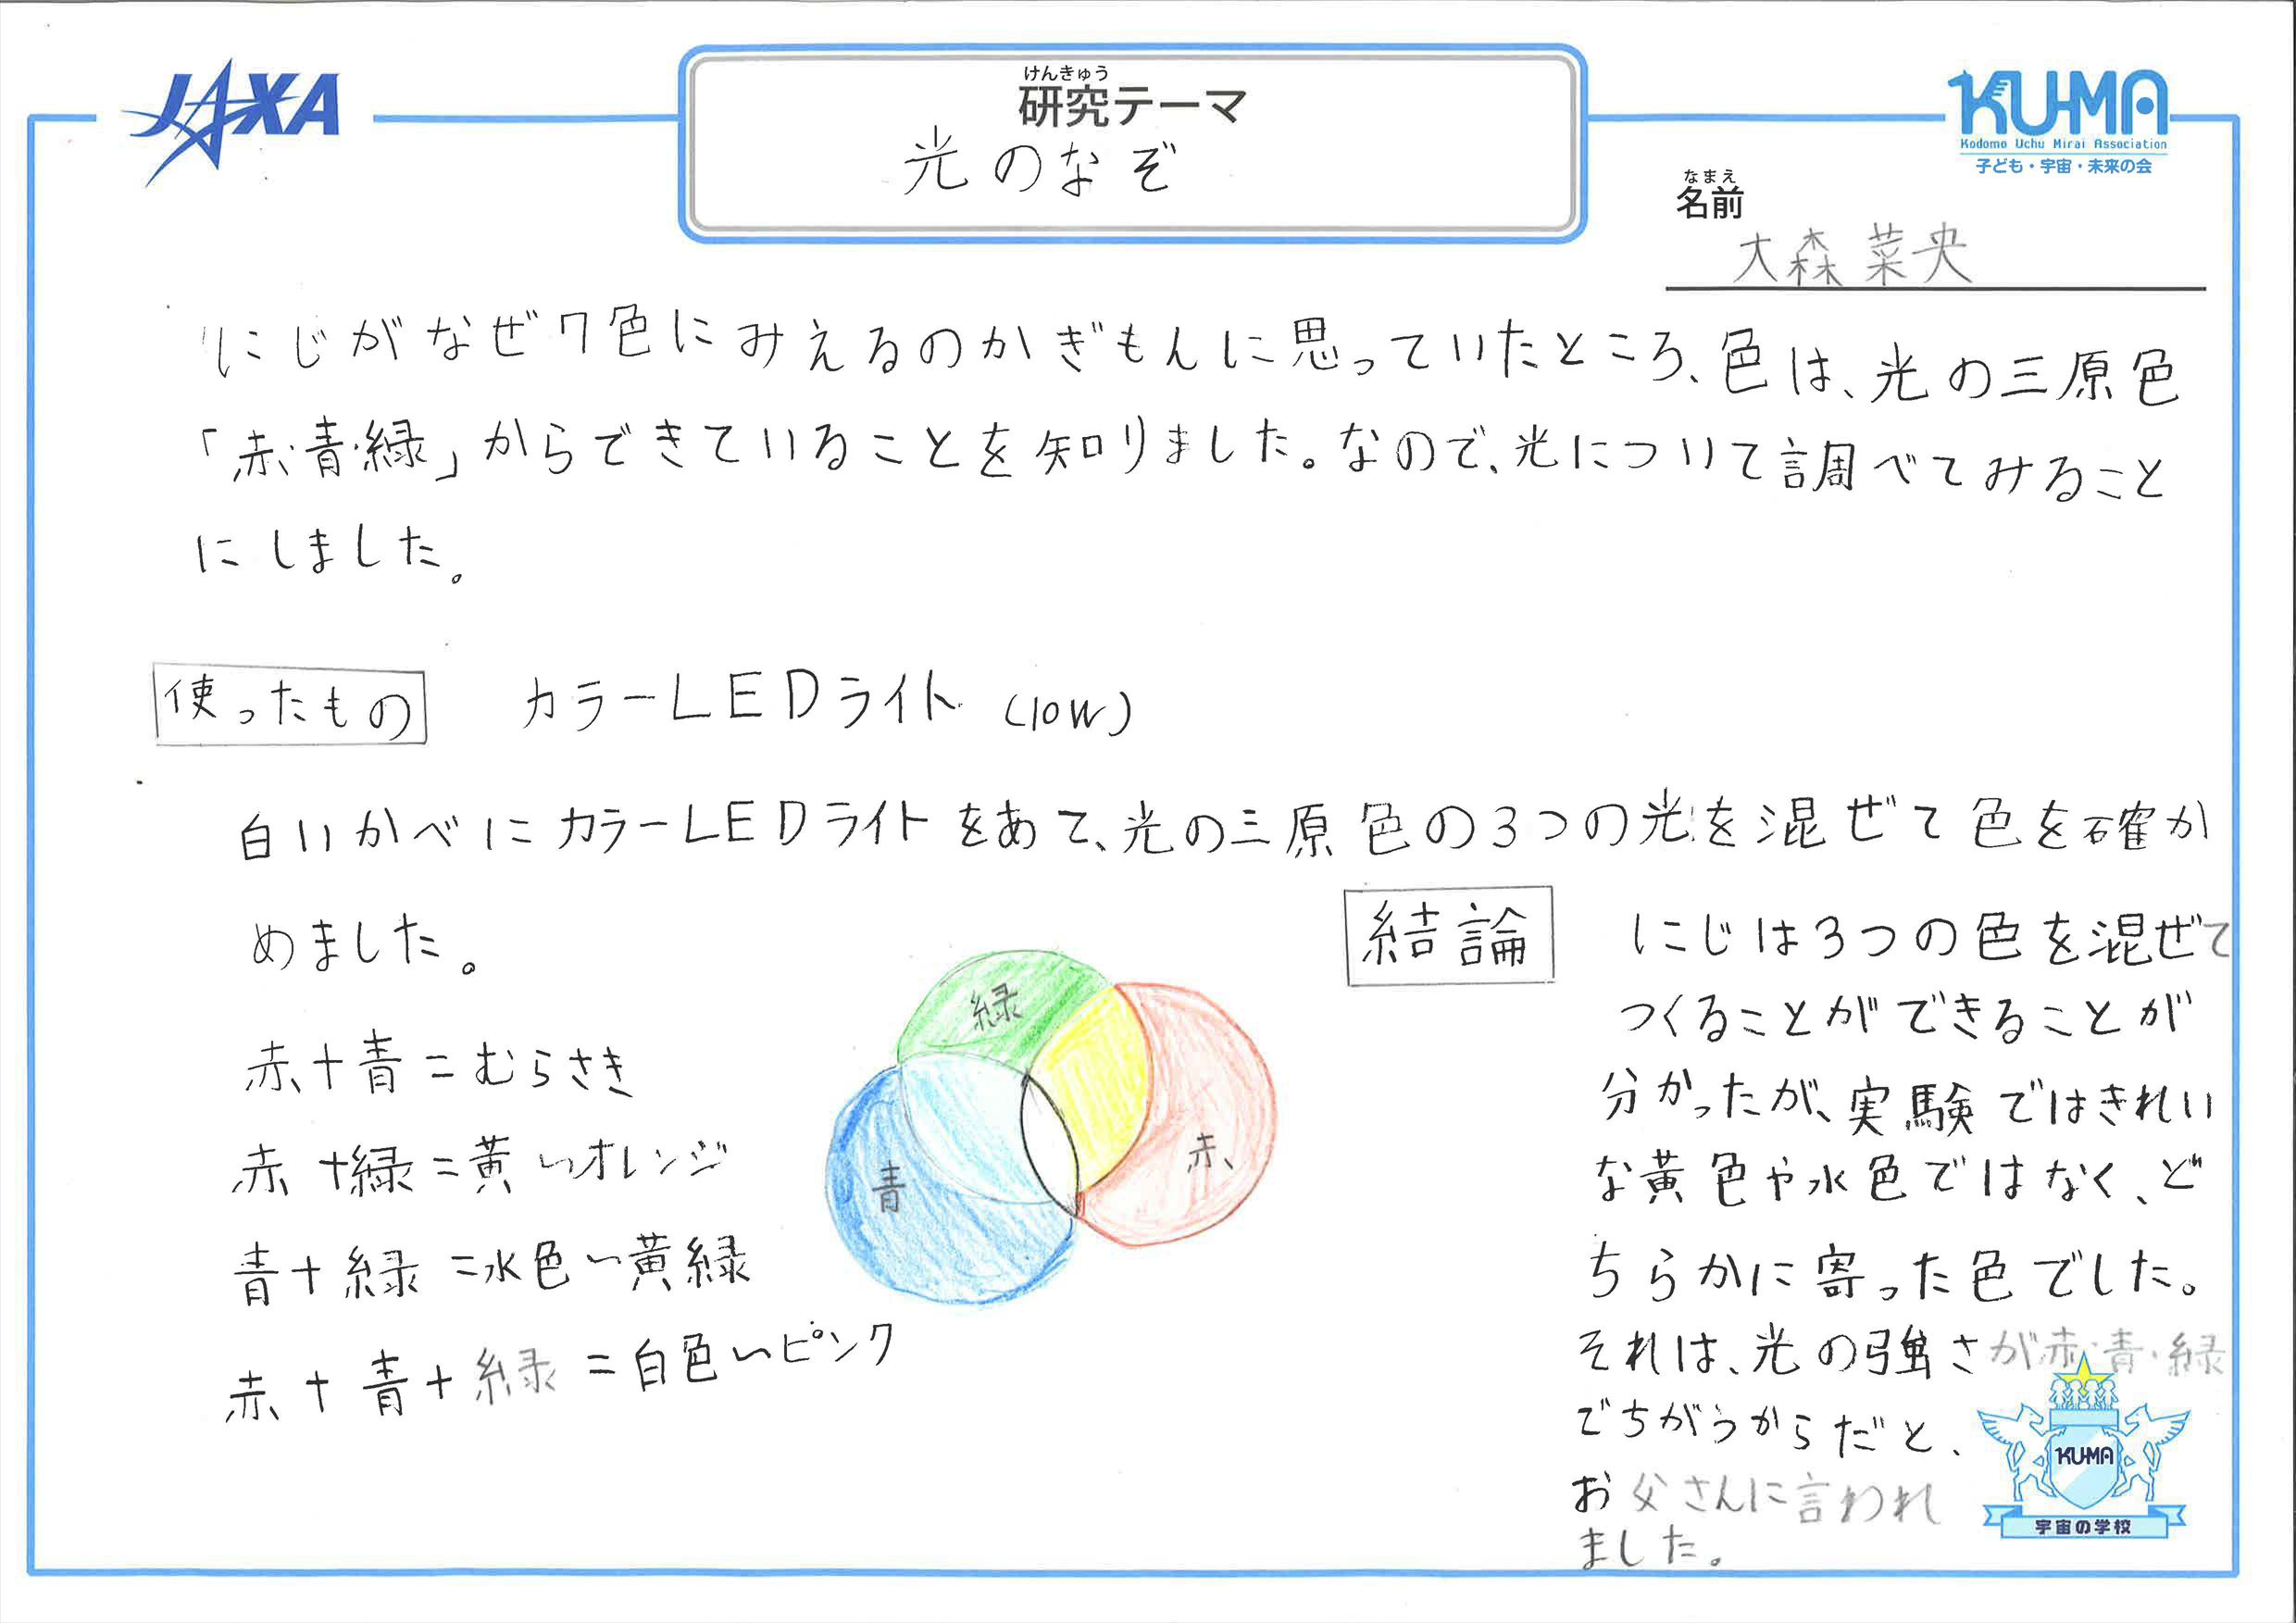 JAXA
けんきゅう
研究テーマ
光のなぞ
KUMA
Kodomo Uchu Mirai Association
子ども・宇宙・未来の会
なまえ
名前
大森菜央
にじがなぜ7色にみえるのかぎもんに思っていたところ、色は、光の三原色
「赤・青・緑」からできていることを知りました。なので、光について調べてみること
にしました。
使ったもの カラーLEDライト (10W)
白いかべにカラーLEDライトをあて、光の三原色の3つの光を混ぜて色を確か
めました。
赤+青=むらさき
赤+緑=黄〜オレンジ
青+緑=水色〜黄緑
赤+青+緑=白色〜ピンク
緑
青
赤
結論
にじは3つの色を混ぜて
つくることができることが
分かったが、実験ではきれい
な黄色や水色ではなく、ど
ちらかに寄った色でした。
それは、光の強さが赤・青・緑
でちがうからだと、
お父さんに言われ
ました。
KUMA
宇宙の学校